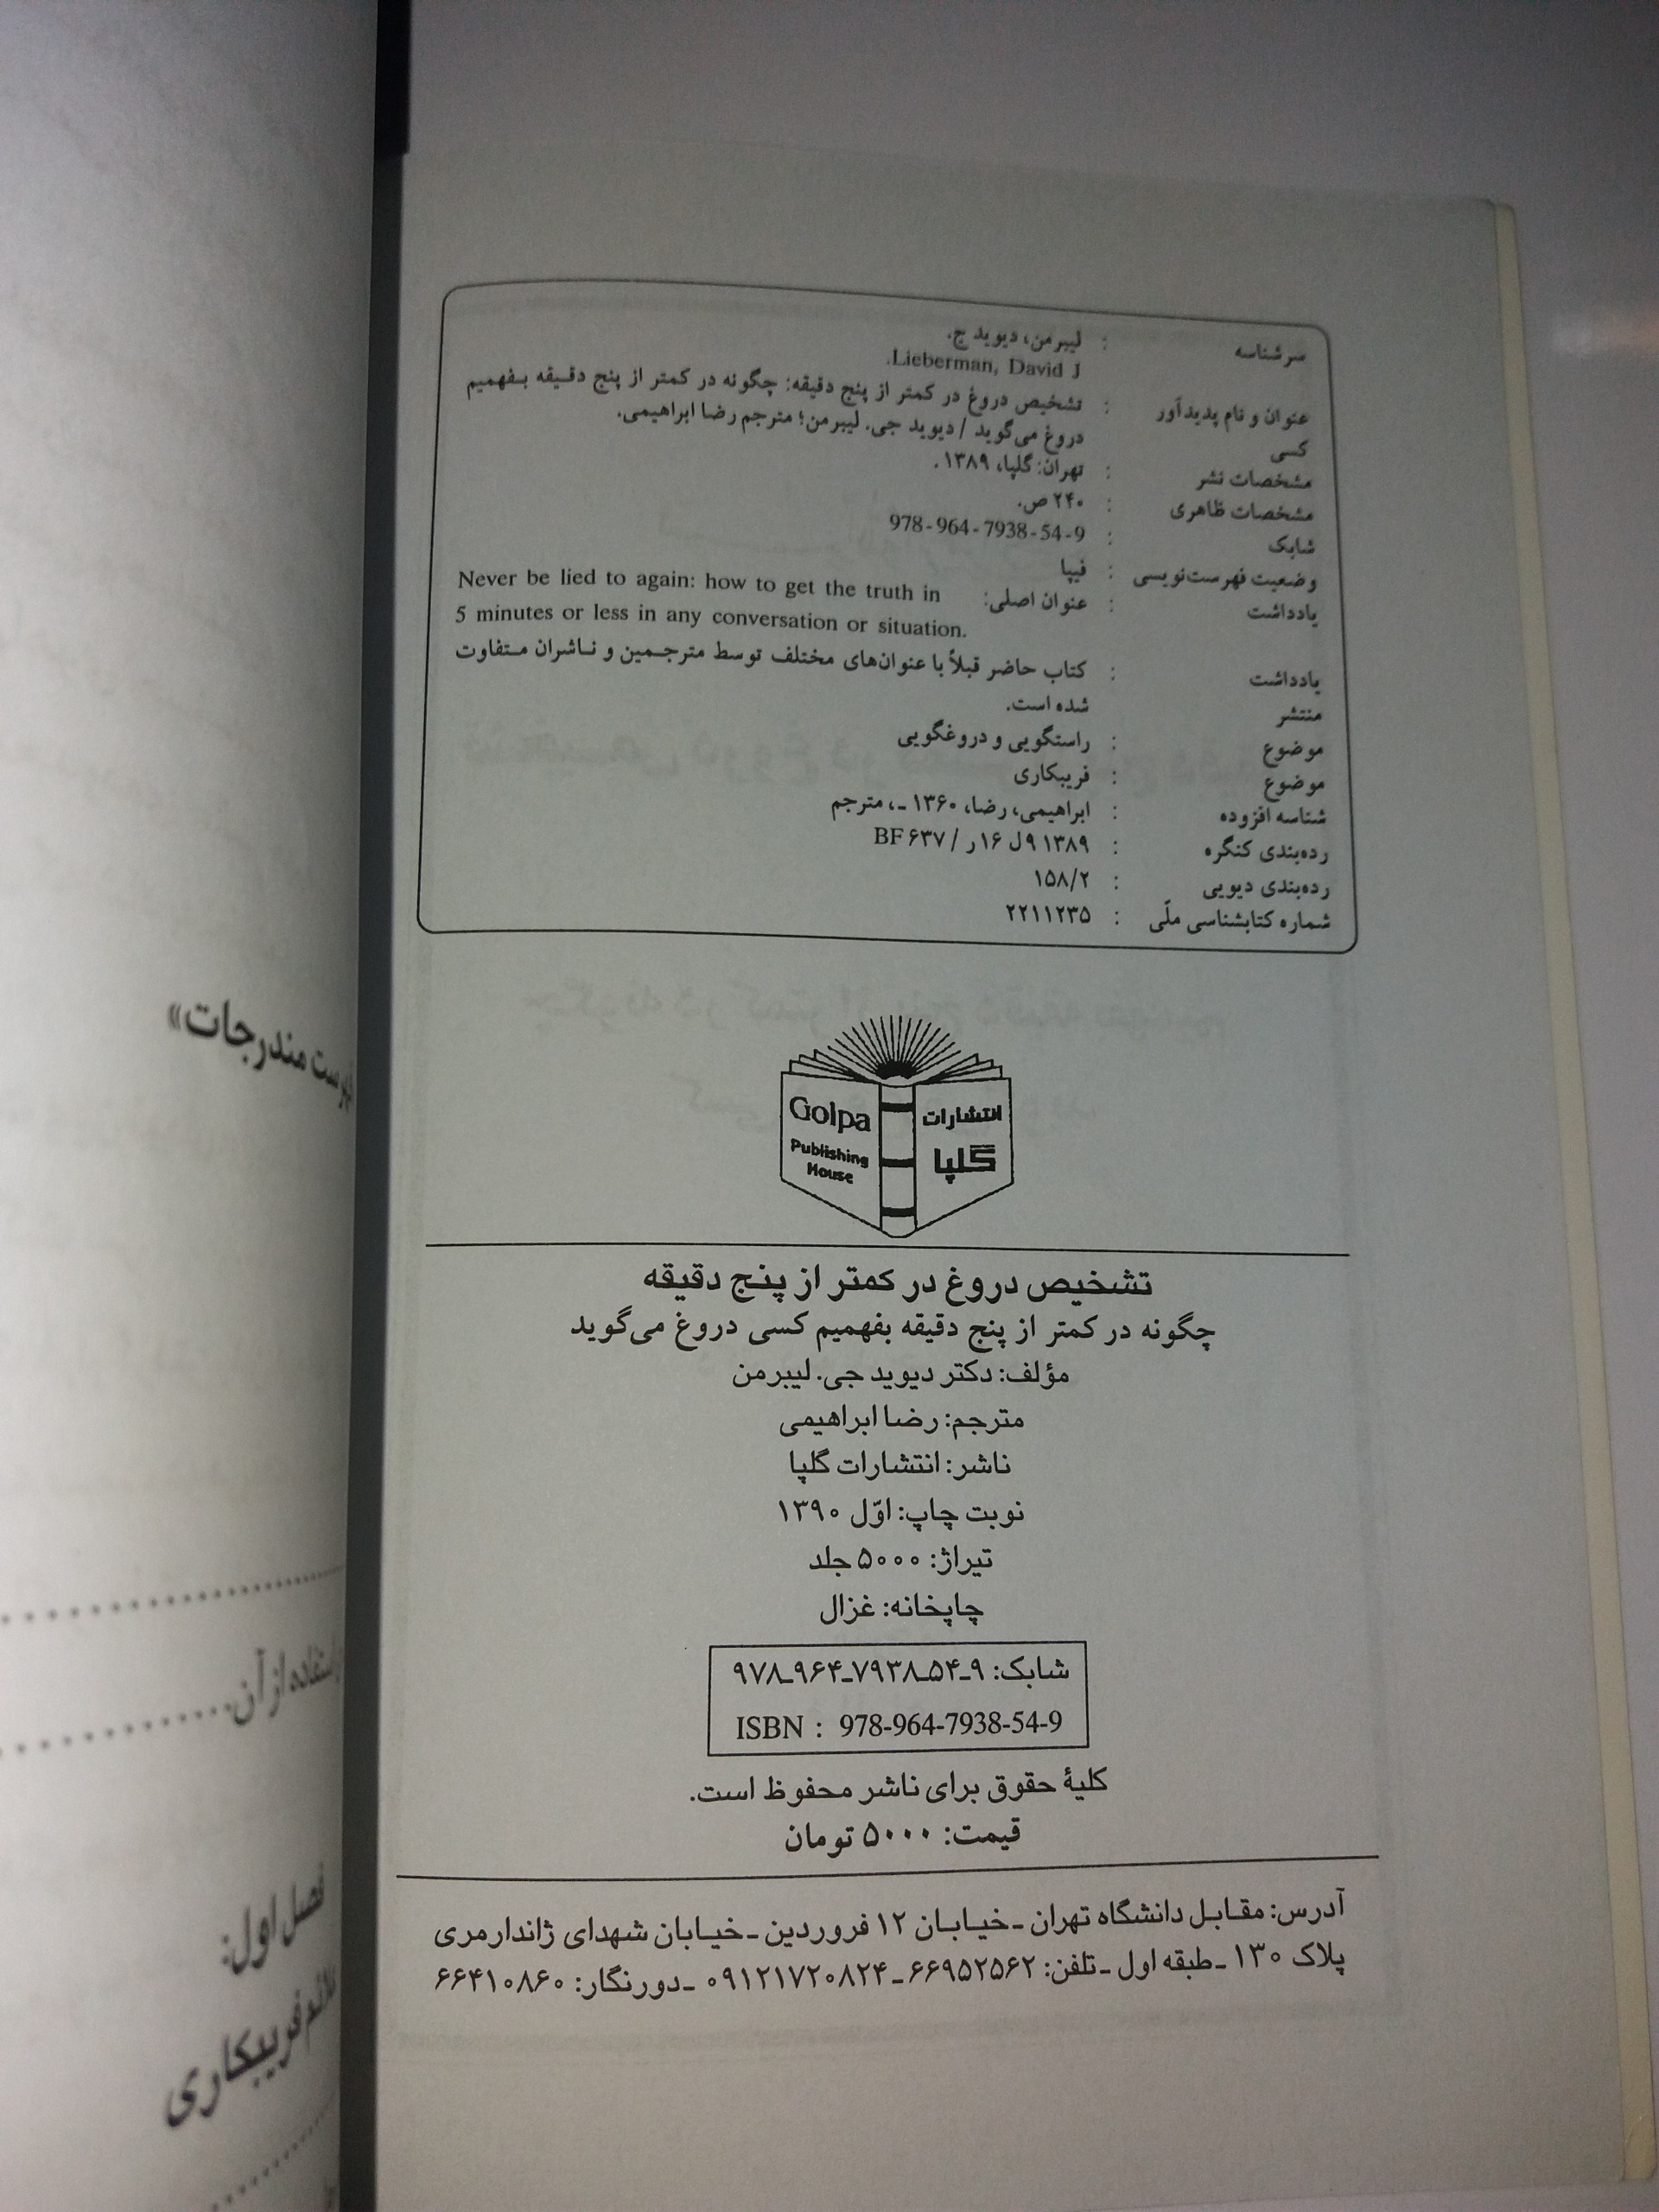 سرشناسه : لیبرمن، دیوید ج.
Lieberman, David J.
عنوان و نام پدیدآور : تشخیص دروغ در کمتر از پنج دقیقه: چگونه در کمتر از پنج دقیقه بفهمیم
کسی دروغ می‌گوید / دیوید جی. لیبرمن؛ مترجم رضا ابراهیمی.
مشخصات نشر : تهران: گلپا، ۱۳۸۹.
مشخصات ظاهری : ۲۴۰ ص.
شابک : 978-964-7938-54-9
وضعیت فهرست‌نویسی : فیپا
یادداشت : عنوان اصلی: Never be lied to again: how to get the truth in
5 minutes or less in any conversation or situation.
یادداشت : کتاب حاضر قبلاً با عنوان‌های مختلف توسط مترجمین و ناشران متفاوت
منتشر شده است.
موضوع : راستگویی و دروغگویی
موضوع : فریبکاری
شناسه افزوده : ابراهیمی، رضا، ۱۳۶۰ -، مترجم
رده‌بندی کنگره : ۱۳۸۹ ۹ل ۱۶ر / BF ۶۳۷
رده‌بندی دیویی : ۱۵۸/۲
شماره کتابشناسی ملّی : ۲۲۱۱۲۳۵
Golpa
Publishing
House
انتشارات
گلپا
تشخیص دروغ در کمتر از پنج دقیقه
چگونه در کمتر از پنج دقیقه بفهمیم کسی دروغ می‌گوید
مؤلف: دکتر دیوید جی. لیبرمن
مترجم: رضا ابراهیمی
ناشر: انتشارات گلپا
نوبت چاپ: اوّل ۱۳۹۰
تیراژ: ۵۰۰۰ جلد
چاپخانه: غزال
شابک: ۹-۵۴-۷۹۳۸-۹۶۴-۹۷۸
ISBN : 978-964-7938-54-9
کلیهٔ حقوق برای ناشر محفوظ است.
قیمت: ۵۰۰۰ تومان
آدرس: مقابل دانشگاه تهران - خیابان ۱۲ فروردین - خیابان شهدای ژاندارمری
پلاک ۱۳۰ - طبقه اول - تلفن: ۶۶۹۵۲۵۶۲ - ۰۹۱۲۱۷۲۰۸۲۴ - دورنگار: ۶۶۴۱۰۸۶۰
مندرجات»
استفاده از آن
فصل اول:
فریبکاری